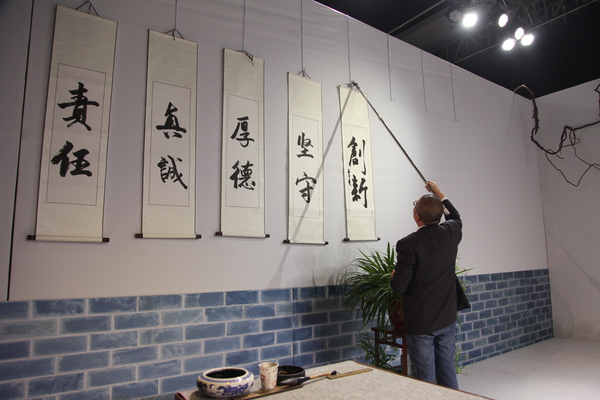 責任
真誠
厚德
坚守
創新